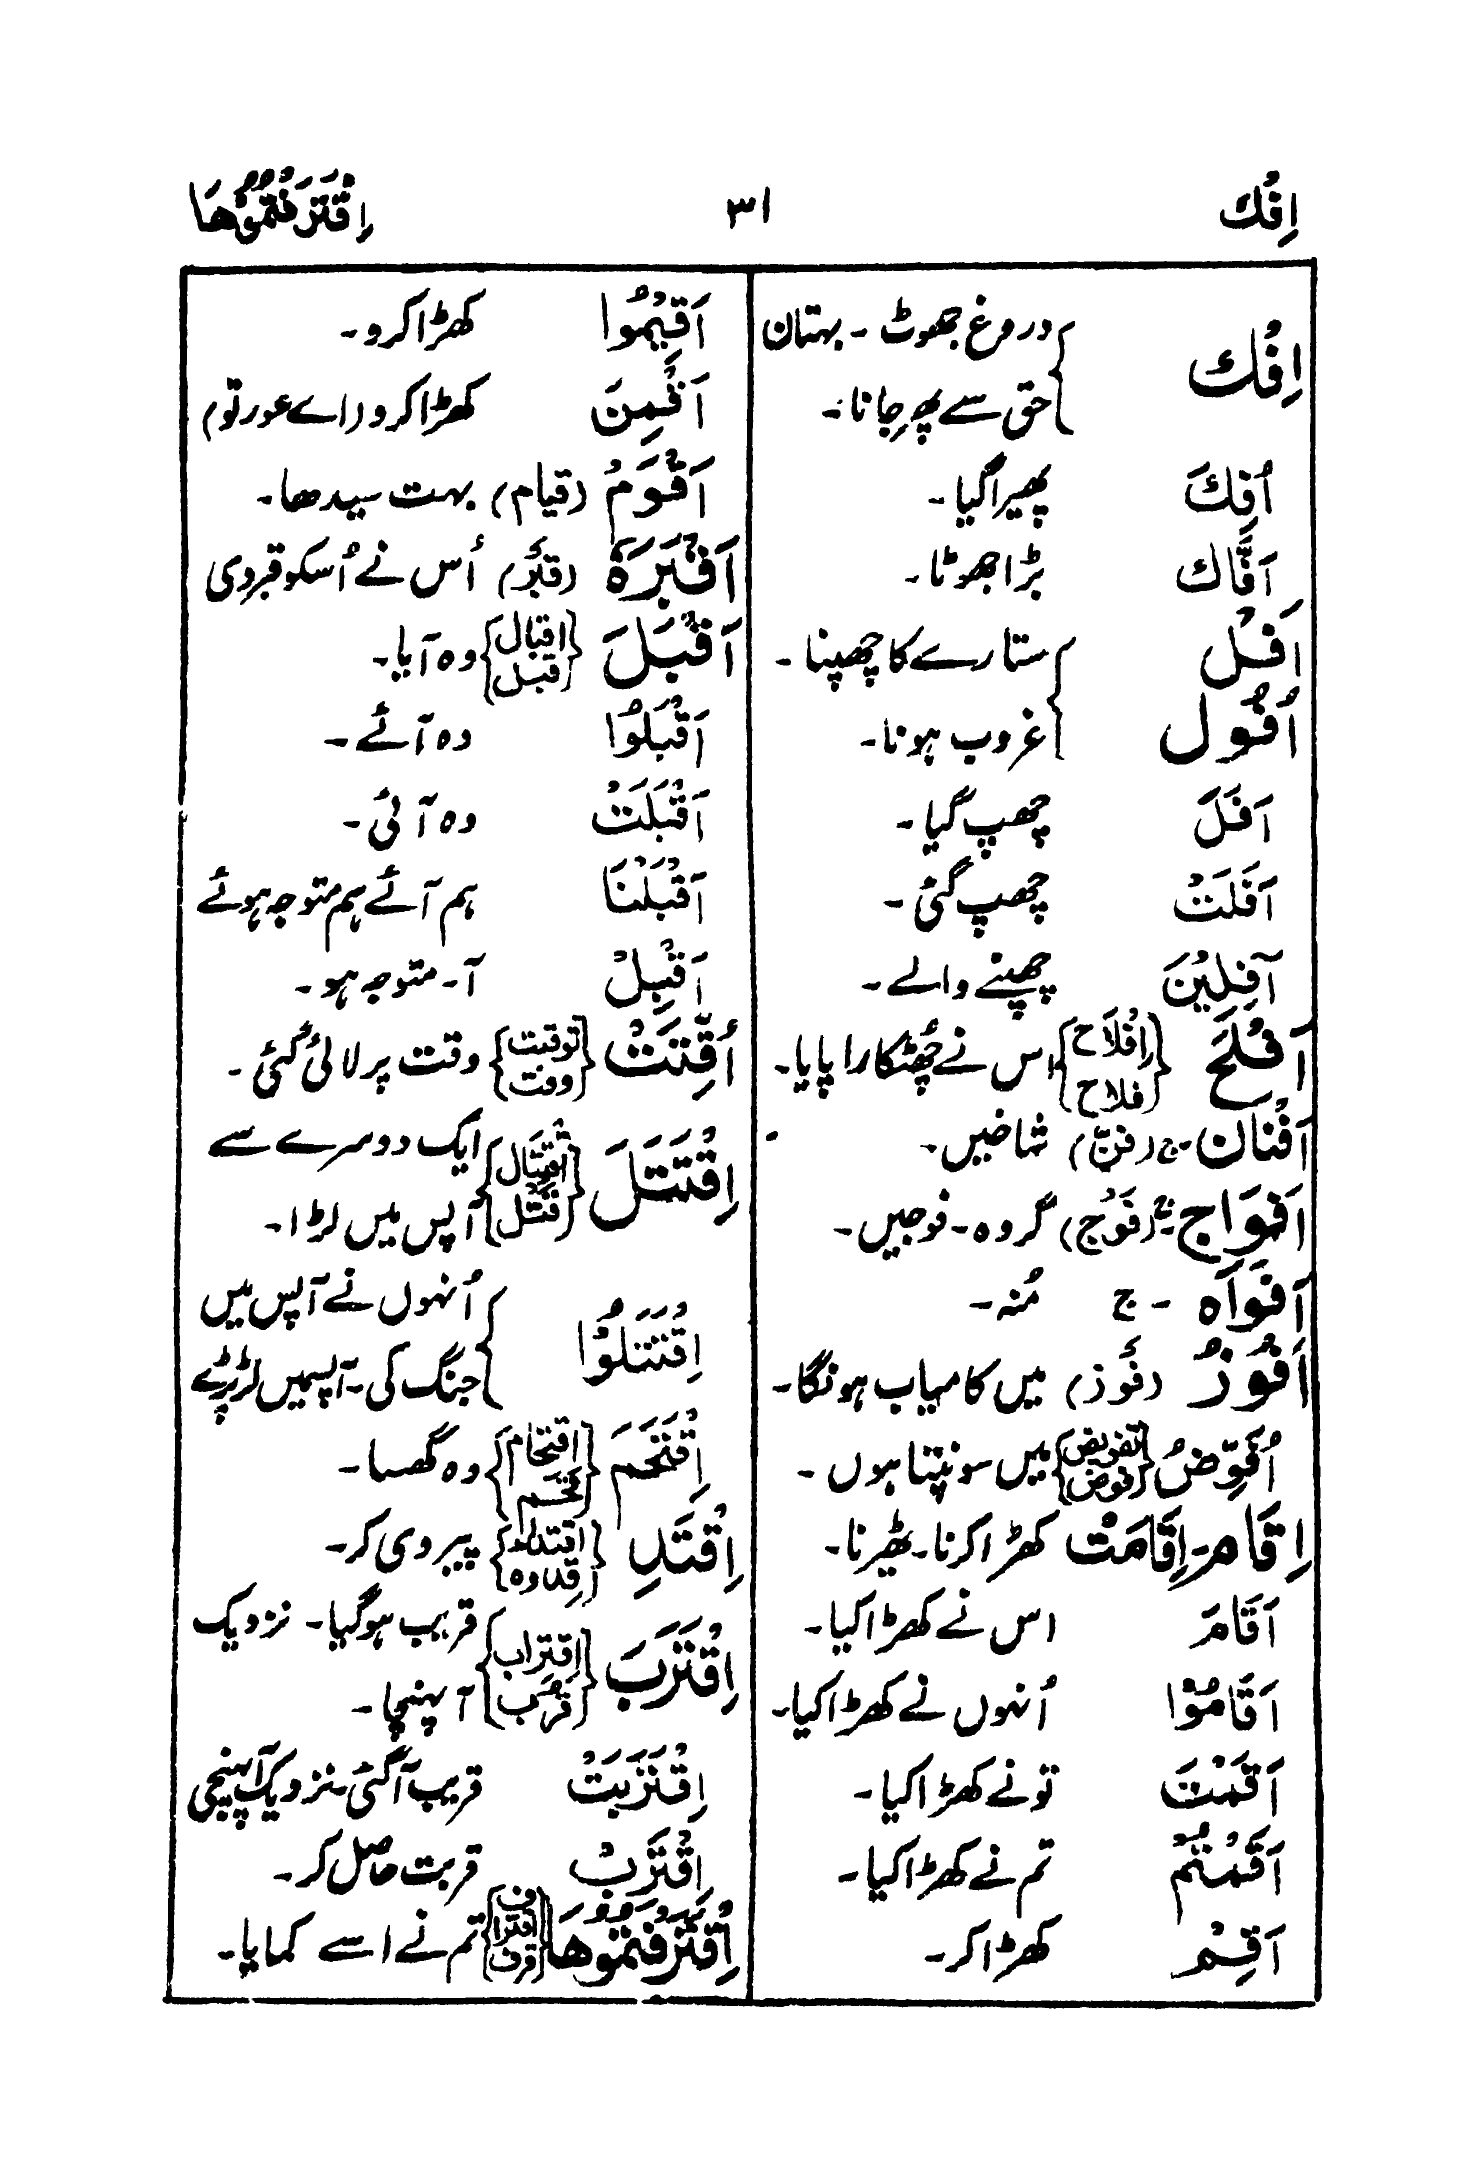 اِفْك ۳۱ اِقْتَرَفْتُمُوْهَا
اِفْك دروغ جھوٹ ۔ بہتان
حق سے پھرجانا۔
اُفِكَ پھیرا گیا۔
اَفَّاك بڑا جھوٹا۔
اَفْل ستارے کا چھپنا ۔
اُفُوْل غروب ہونا۔
اَفَلَ چھپ گیا ۔
اَفَلَتْ چھپ گئی ۔
آفِلِيْنَ چھپنے والے ۔
اَفْلَحَ {اِفْلَاح فلاح} اس نے چُھٹکارا پایا۔
اَفْنَان ۔ج (فَنّ) شاخیں ۔
اَفْوَاج ۔ج (فَوْج) گروہ ۔ فوجیں ۔
اَفْوَاه ۔ ج مُنہ ۔
اَفُوْزُ (فَوْز) میں کامیاب ہونگا۔
اُفَوِّضُ {تفویض فوض} میں سونپتا ہوں ۔
اِقَام۔اِقَامَتْ کھڑا کرنا۔ ٹھیرنا۔
اَقَامَ اس نے کھڑا کیا۔
اَقَامُوْا اُنہوں نے کھڑا کیا۔
اَقَمْتَ تو نے کھڑا کیا ۔
اَقَمْتُمْ تم نے کھڑا کیا۔
اَقِمْ کھڑا کر ۔
اَقِيْمُوا کھڑا کرو ۔
اَقِمْنَ کھڑا کرو (اے عورتو)
اَقْوَمُ (قیام) بہت سیدھا۔
اَقْبَرَهٗ (قبر) اُس نے اُسکو قبر دی
اَقْبَلَ {اقبال قبل} وہ آیا۔
اَقْبَلُوْا وہ آئے ۔
اَقْبَلَتْ وہ آئی ۔
اَقْبَلْنَا ہم آئے ہم متوجہ ہوئے
اَقْبِلْ آ۔ متوجہ ہو ۔
اُقِّتَتْ {توقیت وقت} وقت پر لائی گئی ۔
اِقْتَتَلَ {اقتتال قتل} ایک دوسرے سے
آپس میں لڑا ۔
اِقْتَتَلُوْا اُنہوں نے آپس میں
جنگ کی ۔ آپسمیں لڑپڑے
اِقْتَحَمَ {اقتحام قحم} وہ گھسا ۔
اِقْتَدِ {اقتداء قدوہ} پیروی کر ۔
اِقْتَرَبَ {اقتراب قرب} قریب ہوگیا۔ نزدیک
آ پہنچا ۔
اِقْتَرَبَتْ قریب آگئی ۔ نزدیک آپہنچی
اِقْتَرِبْ قربت حاصل کر ۔
اِقْتَرَفْتُمُوْهَا {اقتراف قرف} تم نے اسے کمایا ۔